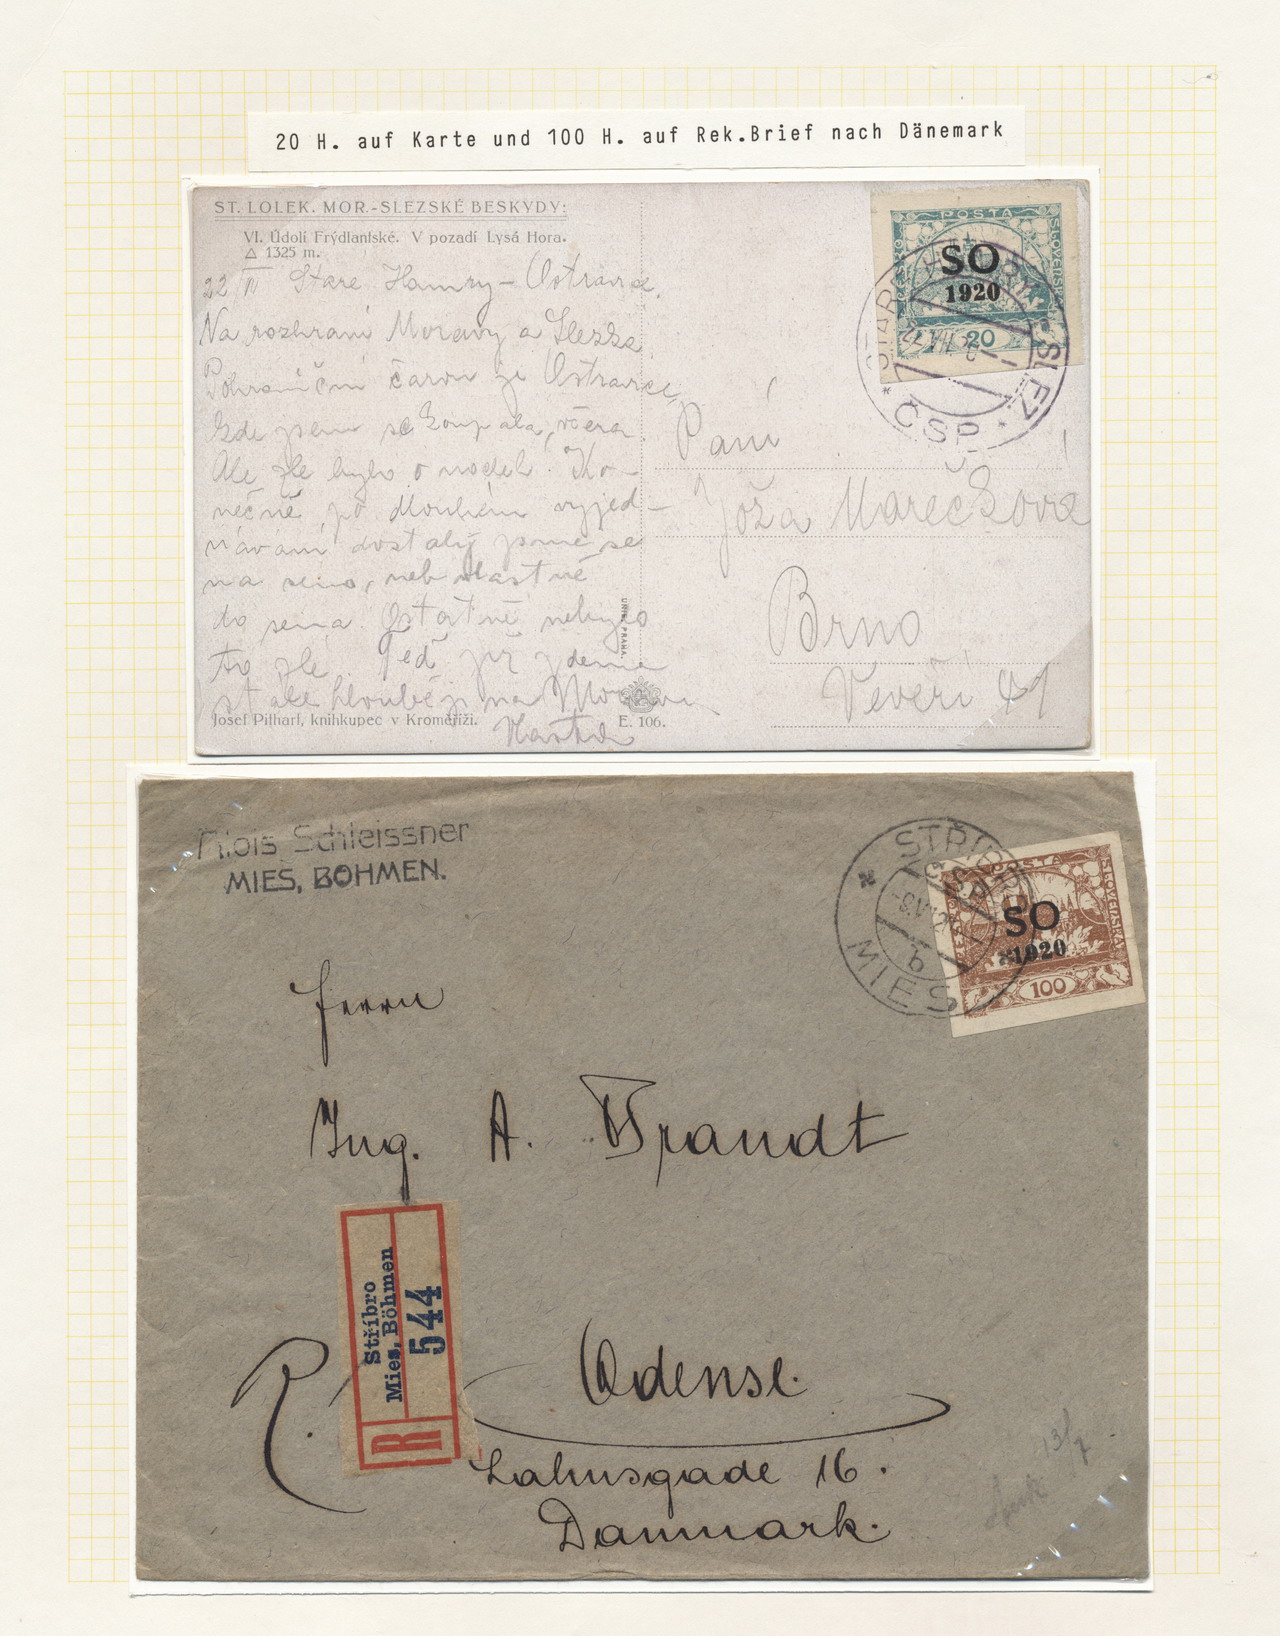 20 H. auf Karte und 100 H. auf Rek.Brief nach Dänemark
ST. LOLEK. MOR.-SLEZSKÉ BESKYDY:
VI. Údolí Frýdlantské. V pozadí Lysá Hora.
△ 1325 m.
22 Staré Hamry - Ostravice.
Na rozhraní Moravy a Slezska
Ostravice,
kde jsem se koupala včera.
Ale zle bylo o nocleh. Ko-
nečně, po dlouhém vyjed-
návání dostaly jsme se
na seno, neb vlastně
do sena. Ostatně nebylo
to zlé. Teď již jdeme
stále hlouběji na Moravu
Vlasta
Josef Pithart, knihkupec v Kroměříži.
UNIE, PRAHA.
E. 106.
POSTA
ČESKO
SLOVENSKÁ
SO
1920
20
STARÉ HAMRY SLEZ.
* ČSP *
Paní
Joža Marečková
Brno
Veveří 41
Alois Schleissner
MIES, BÖHMEN.
STŘÍBRO
ČSP
b
* MIES *
POSTA
ČESKO
SLOVENSKÁ
SO
1920
100
Herrn
Ing. A. Brandt
Stříbro
Mies, Böhmen
544
R
R.
Odense.
Lahnsgade 16.
Danmark.
13/7